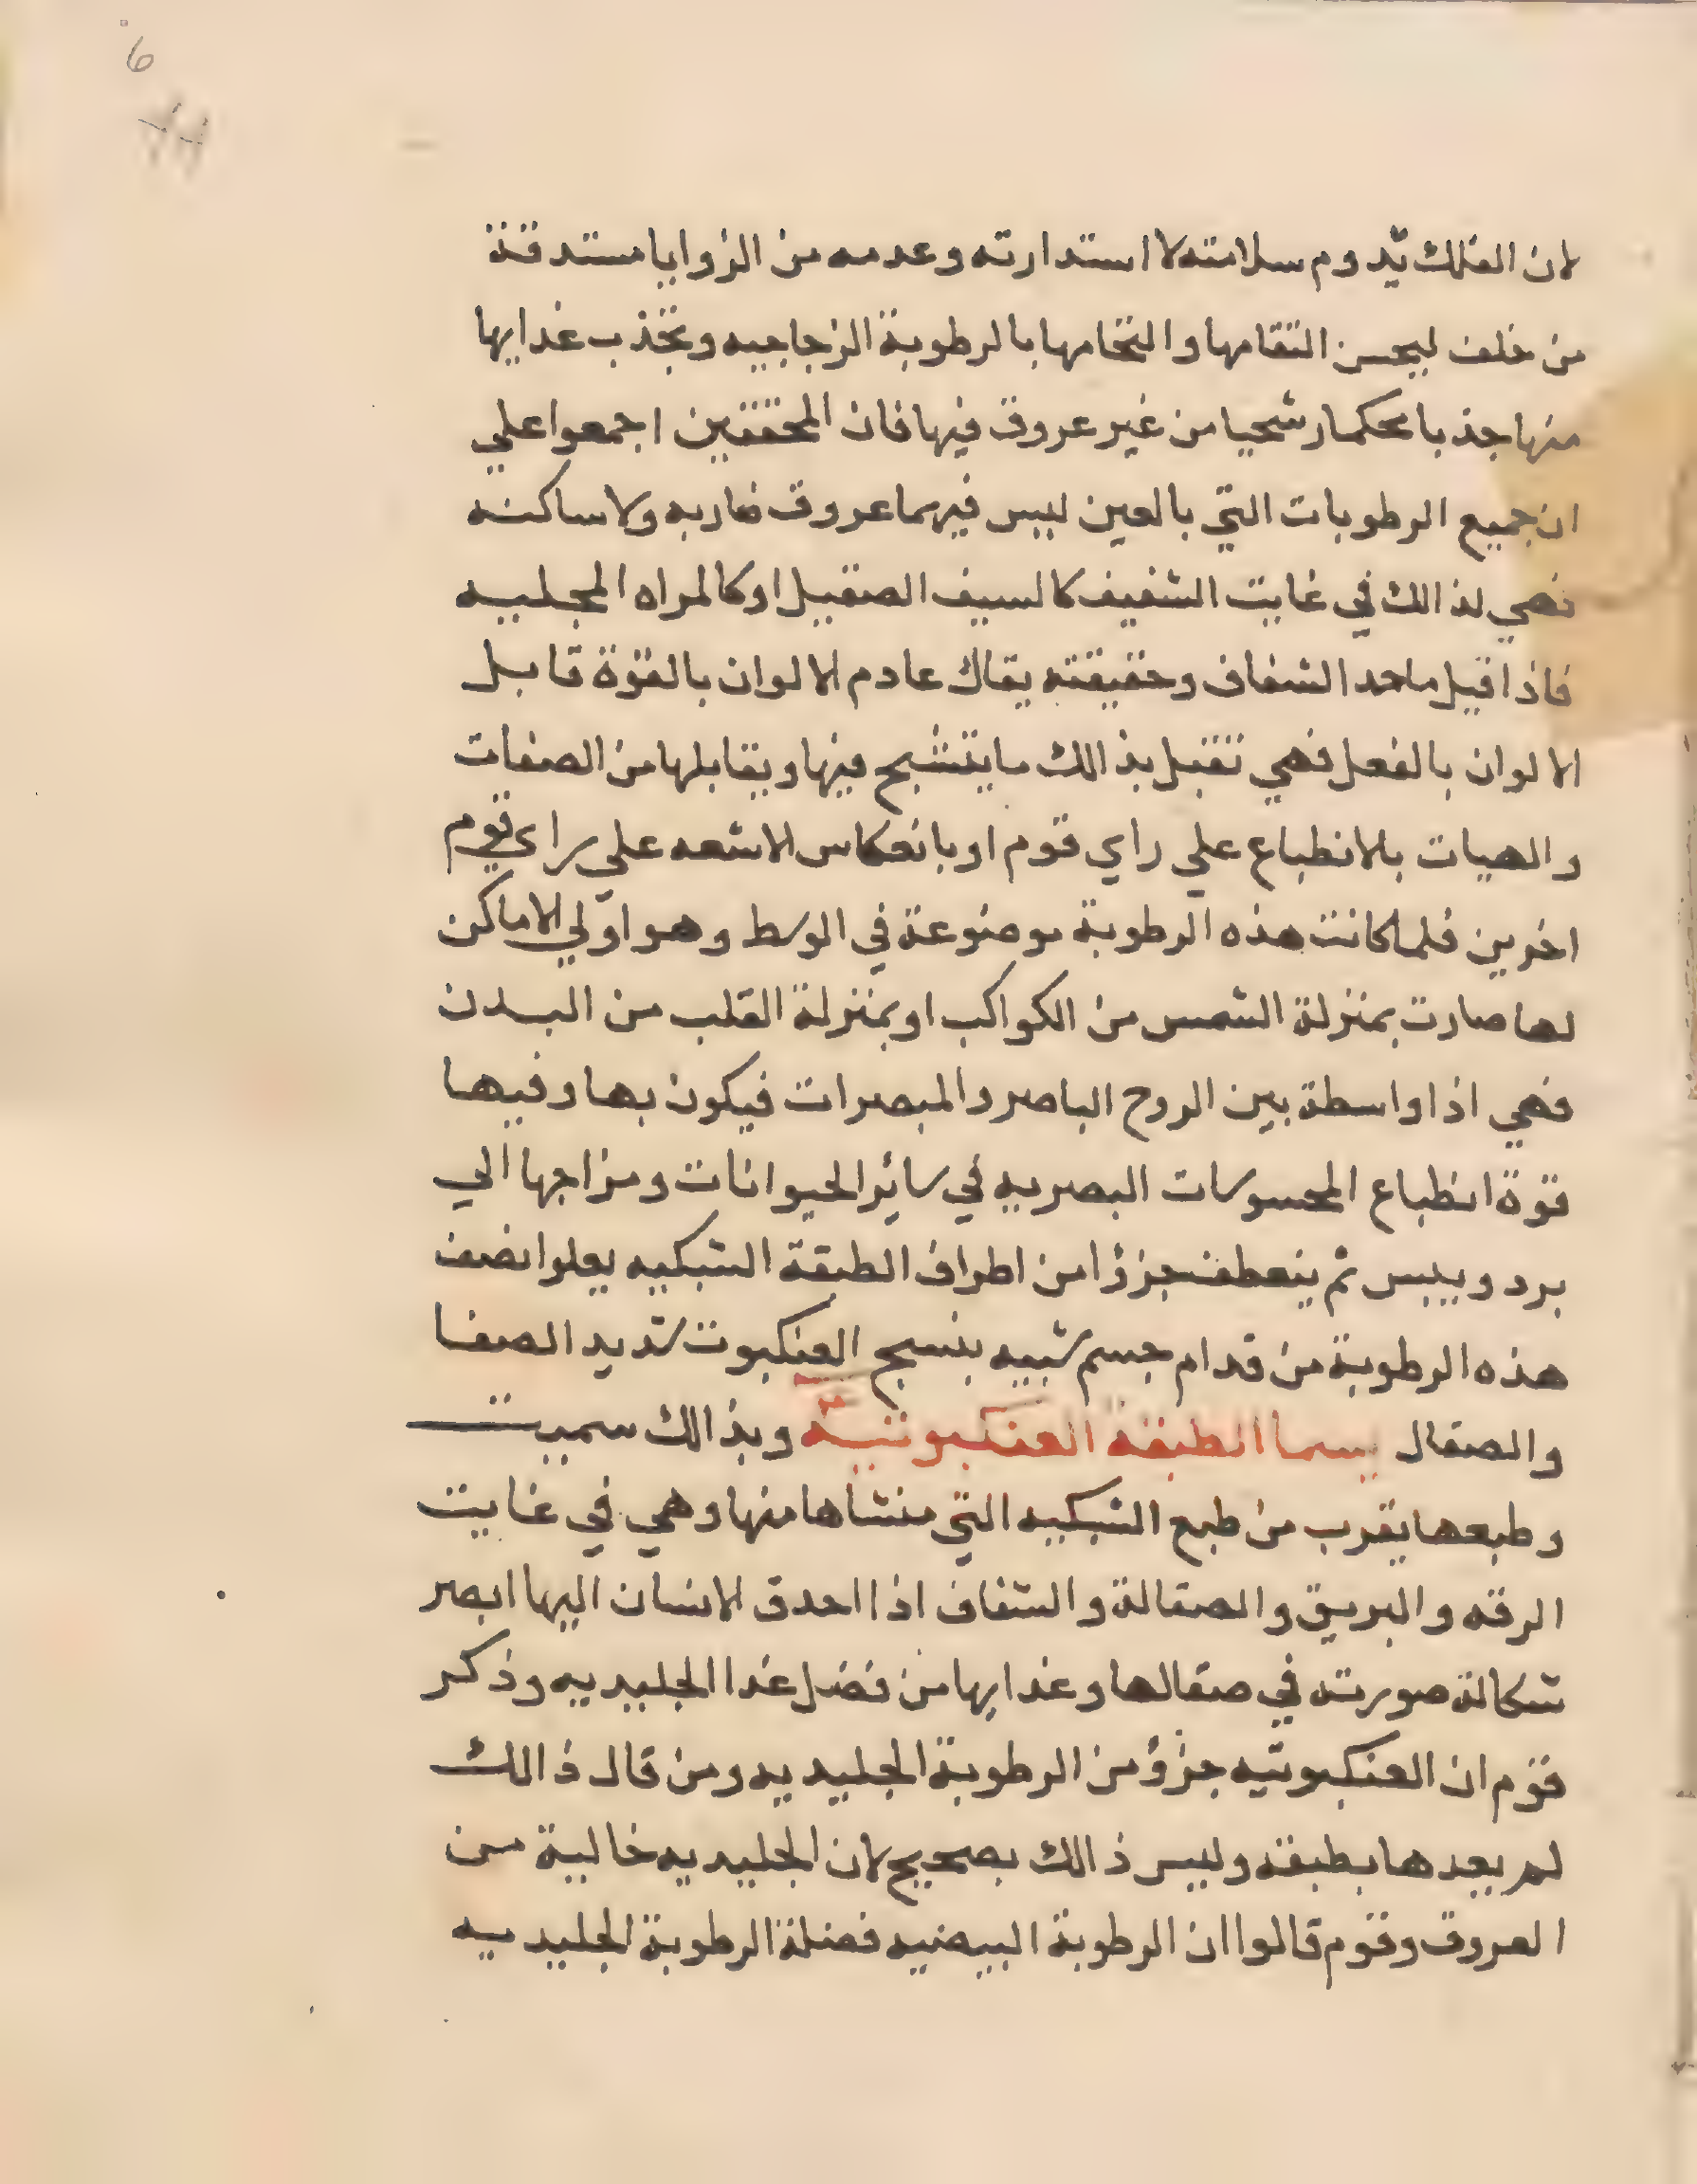 6
لان الفلك يدوم سلامته لا استدارته وعدمه من الزوايا مستدقة
من خلف ليحسن التقامها والتحامها بالرطوبة الزجاجيه وتجذب غدايها
منها جذبا محكما رشحيا من غير عروق فيها فان المحققين اجمعوا علي
ان جميع الرطوبات التي بالعين ليس فيهما عروق ضاربه ولا ساكنه
فهي لذالك في غايت الشفيف كالسيف الصقيل او كالمراه المجليه
فاذا قيل ماحد الشفاف وحقيقته يقال عادم الالوان بالقوة قابل
الالوان بالفعل فهي تقبل بذالك ما يتشبح فيها ويقابلها من الصفات
والهيات بلانطباع علي راي قوم او بانعكاس الاشعه علي راي قوم
اخرين فلما كانت هذه الرطوبة موضوعة في الوسط وهو اولي الاماكن
لها صارت بمنزلة الشمس من الكواكب او بمنزلة القلب من البدن
فهي اذا واسطة بين الروح الباصر والمبصرات فيكون بها وفيها
قوة انطباع المحسوسات البصريه في سائر الحيوانات ومزاجها الي
برد ويبس ثم ينعطف جزؤا من اطراف الطبقة الشبكيه يعلوا نصف
هذه الرطوبة من قدام جسم شبيه بنسج العنكبوت شديد الصفا
والصقال يسما الطبقة العنكبوتيه وبذالك سميت
وطبعها يقرب من طبع الشبكيه التي منشاها منها وهي في غايت
الرقه والبريق والصقالة والشفاف اذا احدق الانسان اليها ابصر
شكالة صورته في صقالها وغدايها من فضل غدا الجليديه وذكر
قوم ان العنكبوتيه جزؤ من الرطوبة الجليديه ومن قال ذالك
لم يعدها بطبقه وليس ذالك بصحيح لان الجليديه خالية من
العروق وقوم قالوا ان الرطوبة البيضيه فضلة الرطوبة الجليديه